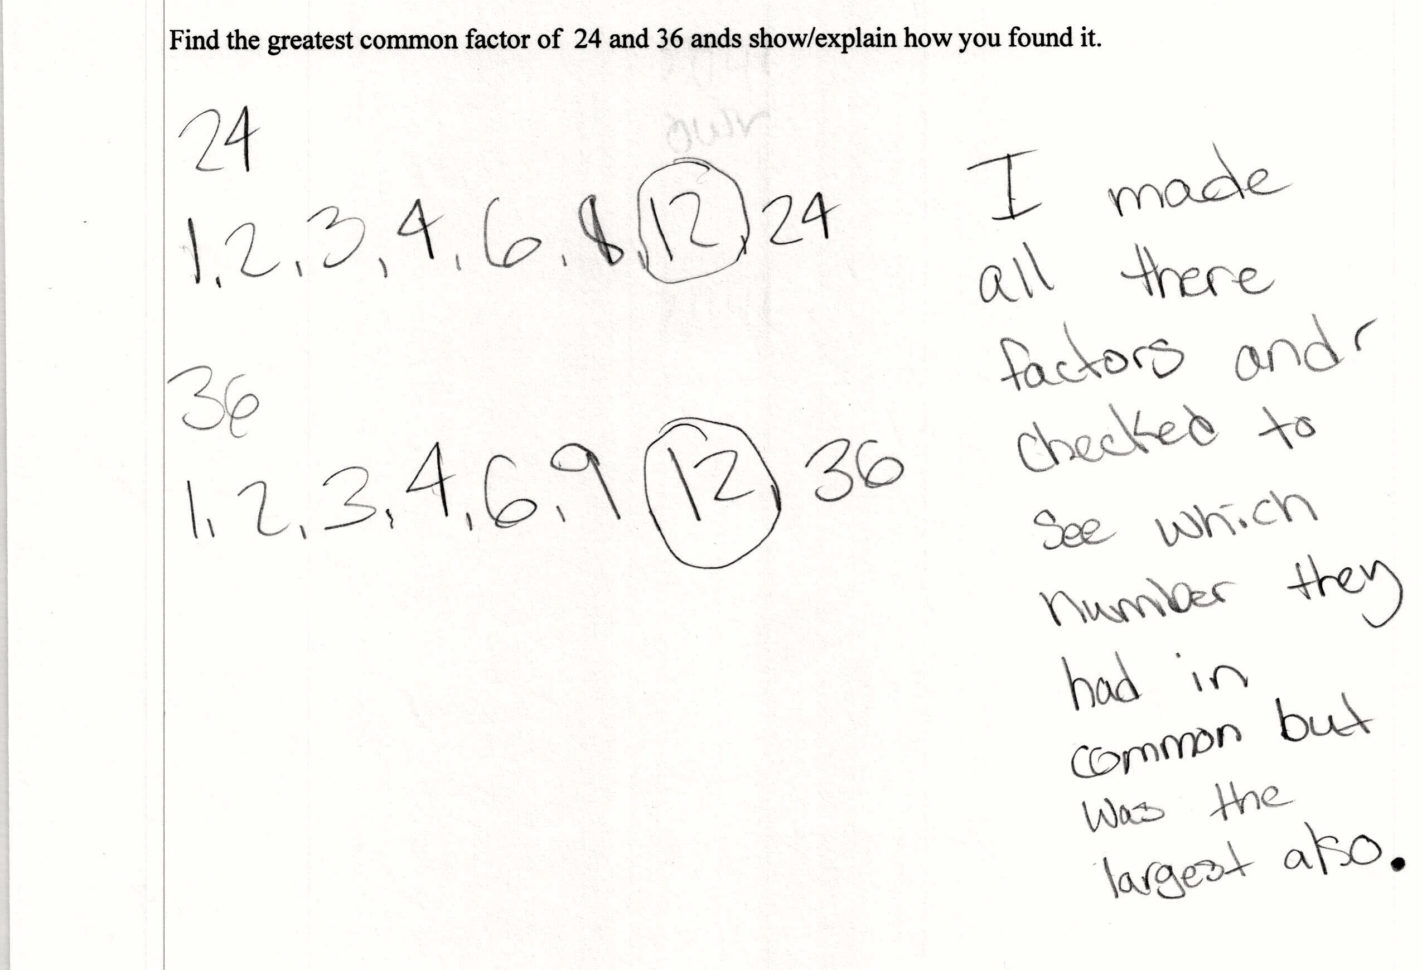 Find the greatest common factor of 24 and 36 ands show/explain how you found it.
24
1, 2, 3, 4, 6, 8, 12, 24
36
1, 2, 3, 4, 6, 9 12, 36
I made
all there
factors and
checked to
see which
number they
had in
common but
was the
largest also.